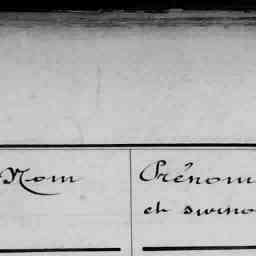 Nom
Prénom
et surno